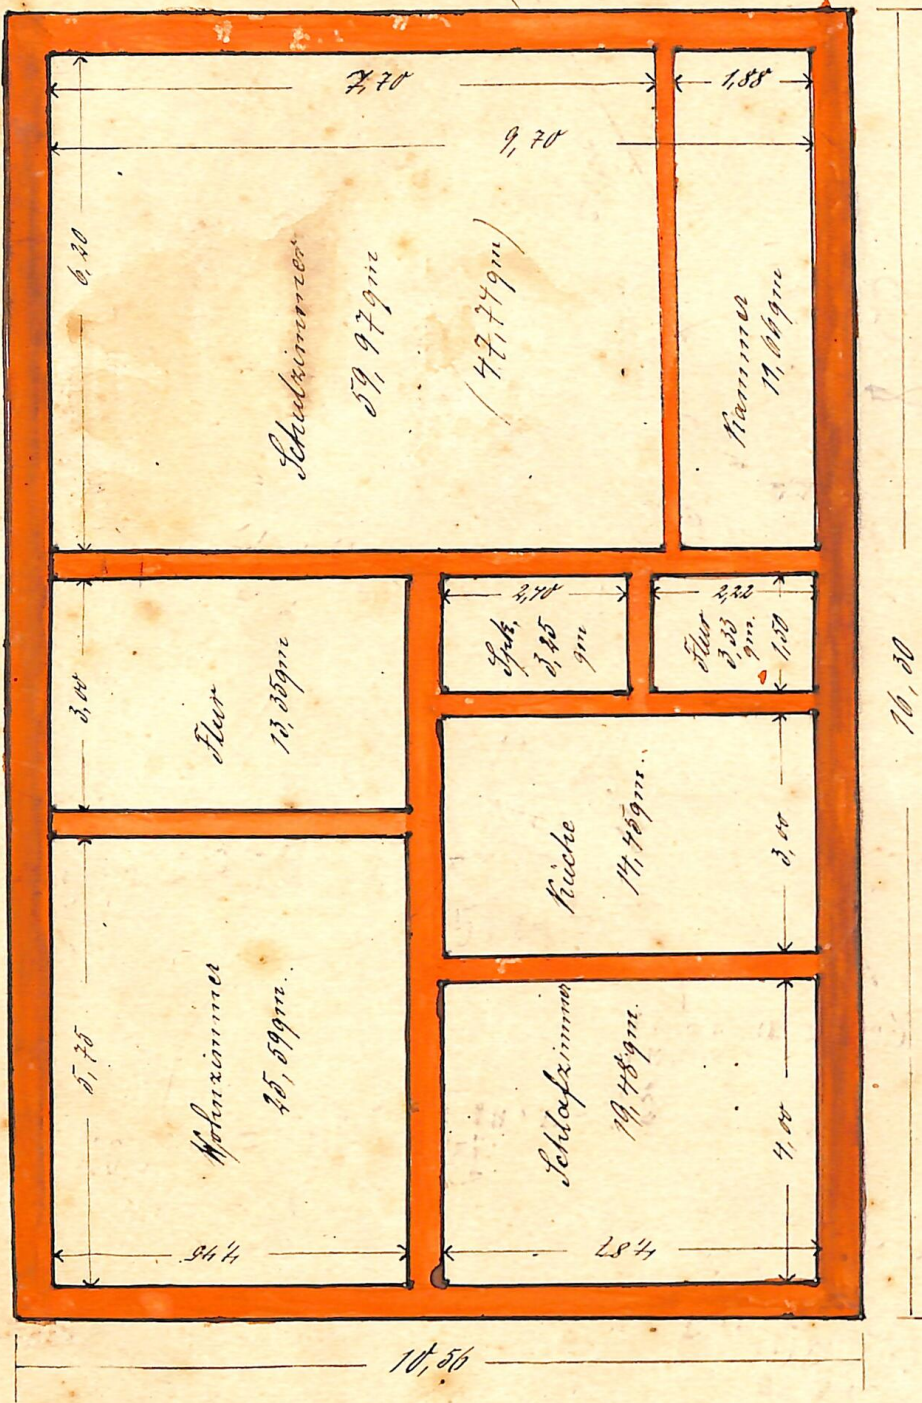 7,70
1,88
9,70
6,20
Schulzimmer
59,97qm
(47,74qm)
Kammer
11,66qm
3,00
Flur
13,35qm
2,40
Spk.
3,25
qm
2,22
Flur
3,33
qm.
1,50
Küche
14,45qm.
3,00
5,75
Wohnzimmer
25,59qm.
4,45
Schlafzimmer
19,48qm.
4,00
4,87
16,30
10,56